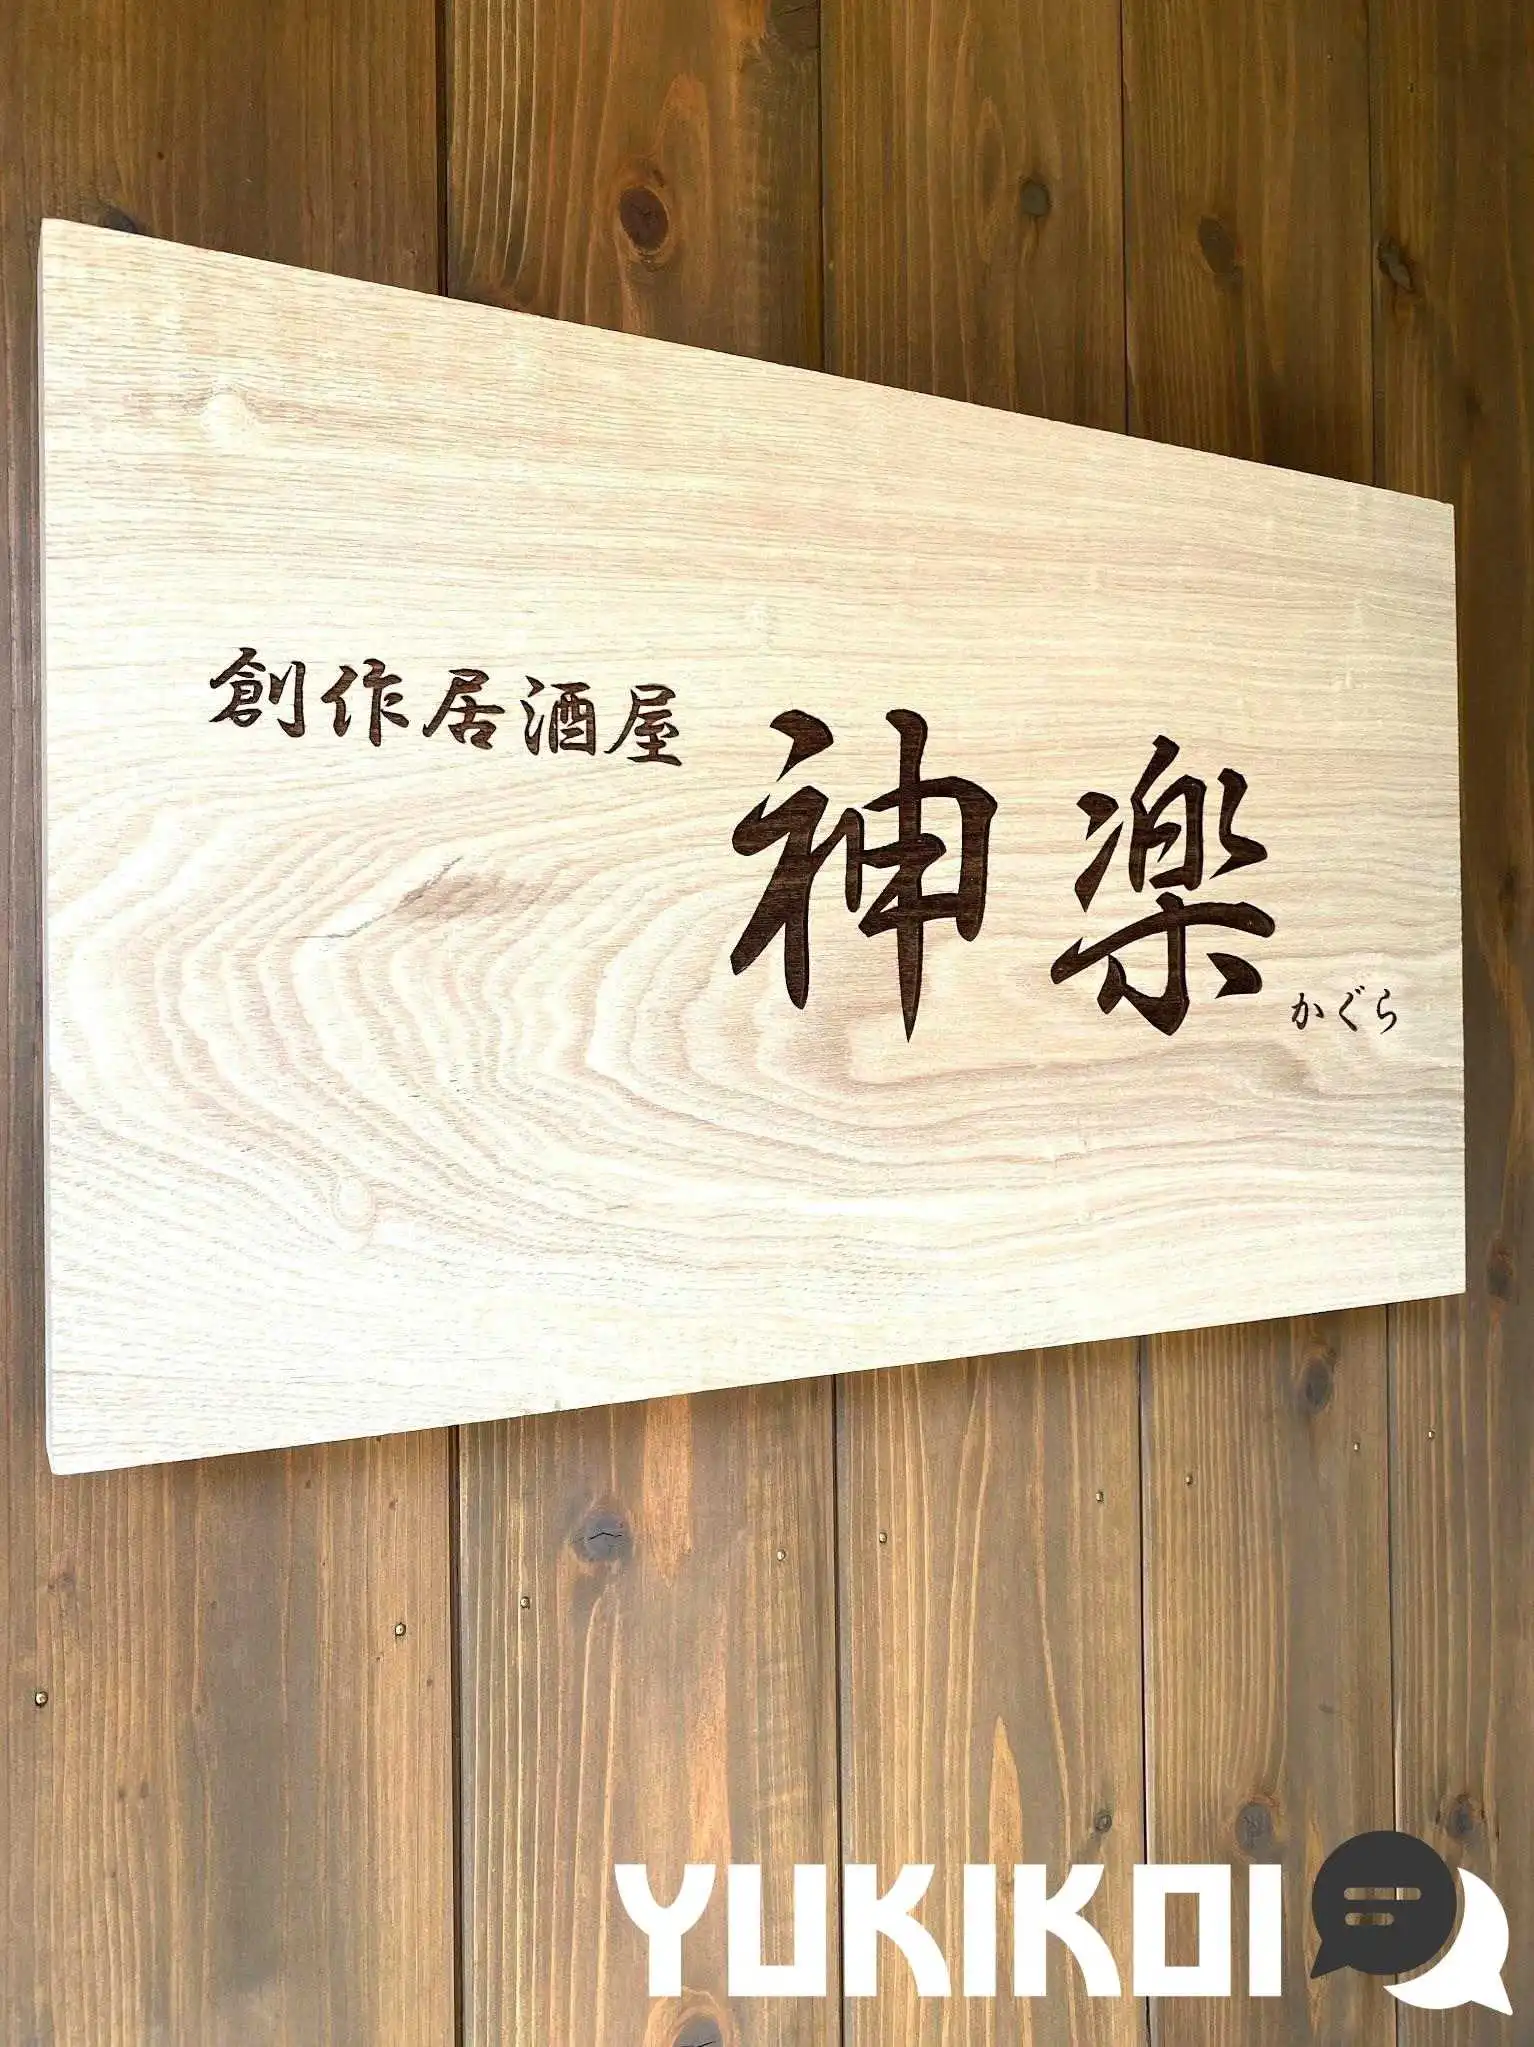 創作居酒屋
神楽
かぐら
YUKIKOI